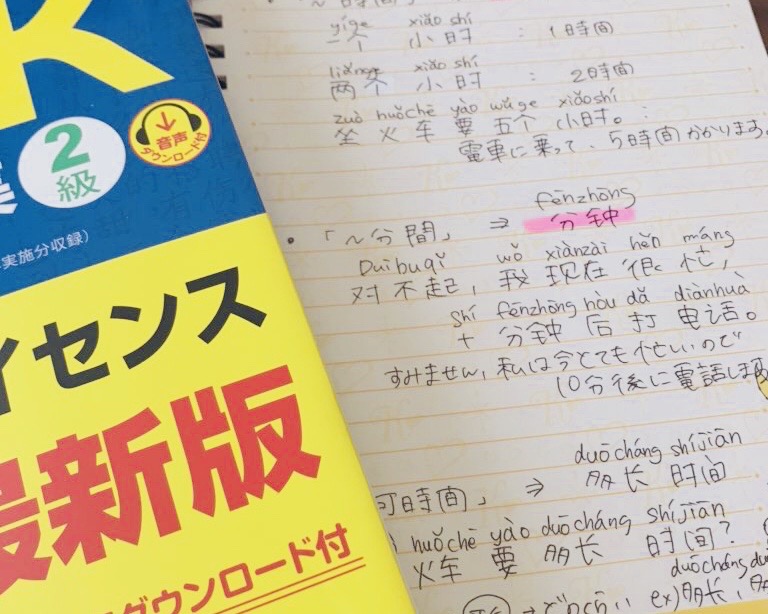 K
集
2級
音声
ダウンロード付
実施分収録）
イセンス
最新版
ダウンロード付
「～時間」
yíge xiǎo shí
一个 小时 : 1時間
liǎngge xiǎo shí
两个 小时 : 2時間
zuò huǒchē yào wǔge xiǎoshí
坐 火车 要 五个 小时。
電車に乗って、5時間かかります。
fēnzhōng
・「～分間」 ⇒ 分钟
Duìbuqǐ wǒ xiànzài hěn máng
对不起，我 现在 很 忙，
shí fēnzhōng hòu dǎ diànhuà
十 分钟 后 打 电话。
すみません、私は今とても忙しいので
10分後に電話します
duōcháng shíjiān
何時間」 ⇒ 多长 时间
huǒchē yào duōcháng shíjiān
火车 要 多长 时间?
duōcháng
ex)多长、